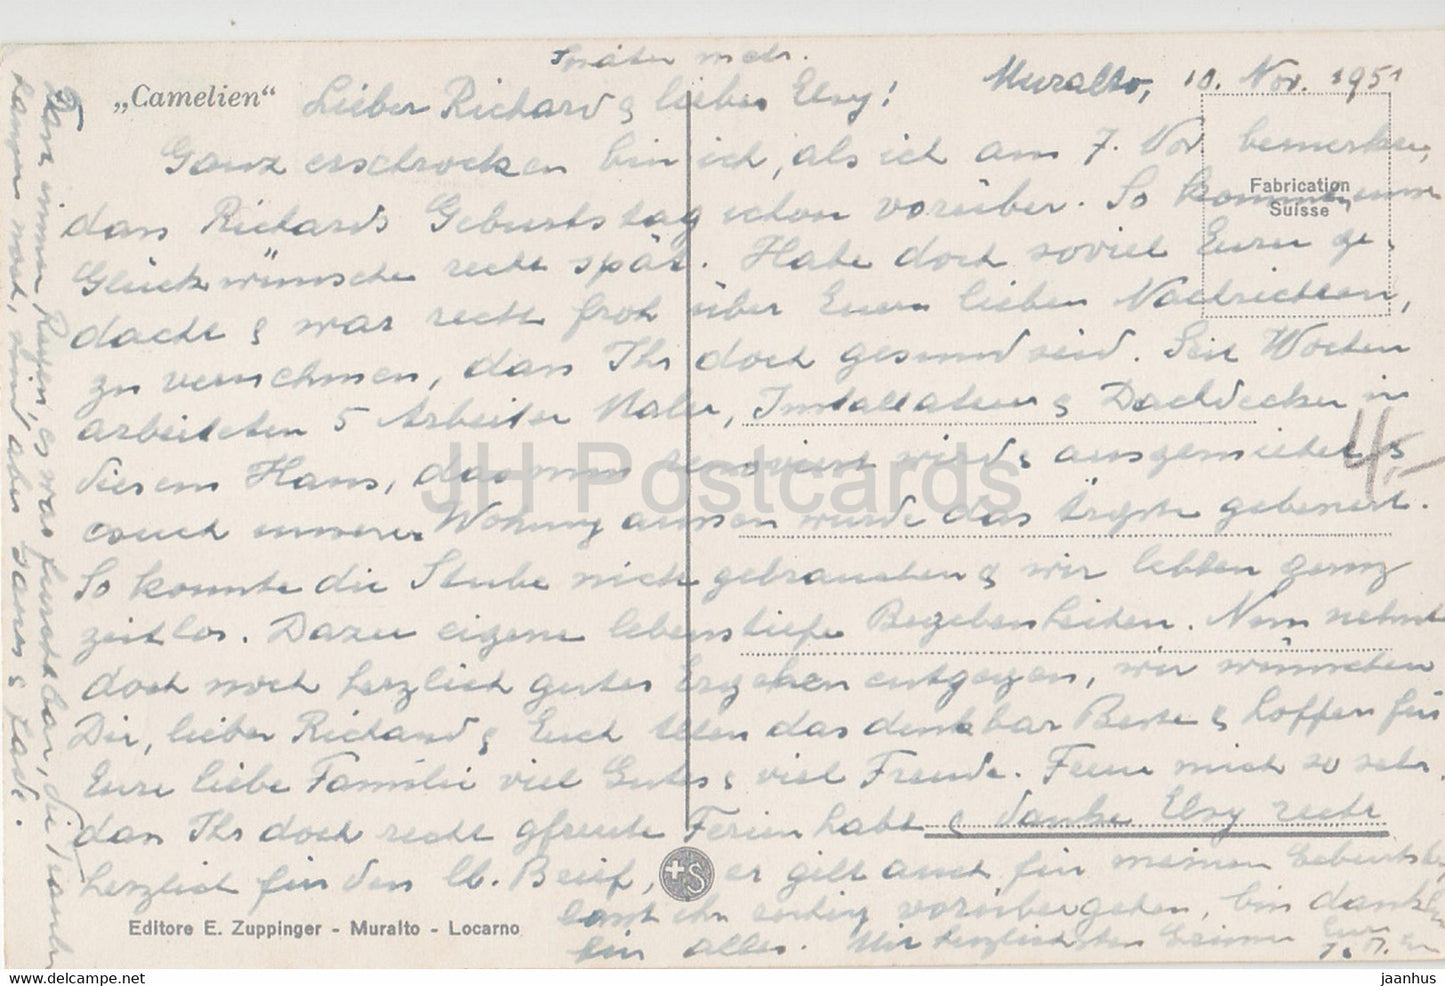 Später mehr.
„Camelien“
Muralto, 10. Nov. 1951
Lieber Richard & liebes Elsy!
Ganz erschrocken bin ich, als ich am 7. Nov bemerkte,
dass Richards Geburtstag schon vorüber. So kommen unsere
Glückwünsche recht spät. Habe doch soviel Eurer ge-
dacht & war recht froh über Euern lieben Nachrichten,
zu vernehmen, dass Ihr doch gesund seid. Seit Wochen
arbeiteten 5 Arbeiter Maler, Installateur & Dachdecker in
diesem Haus, das nun renoviert wird & ausgemietet &
auch unserer Wohnung aussen wurde das ärgste gebessert.
So konnte die Stube nicht gebrauchen & wir lebten ganz
zeitlos. Dazu eigene lebenstiefe Begebenheiten. Nun nehmt
doch noch herzlich gutes Ergehen entgegen, wir wünschen
Dir, lieber Richard & Euch Allen das denkbar Beste & hoffen für
Eure liebe Familie viel Gutes & viel Freude. Freue mich so sehr,
dass Ihr doch recht gfreute Ferien habt & danke Elsy recht
herzlich für den lb. Brief, er gilt auch für meinen
ihn vorübergehen, bin
für alles. Mit herzlichsten
Dann immer Regen, es war furchtbar, die
noch, sind aber &
Fabrication
Suisse
4,-
+S
Editore E. Zuppinger - Muralto - Locarno
JH Postcards
HIP.delcampe.net
jaanhus